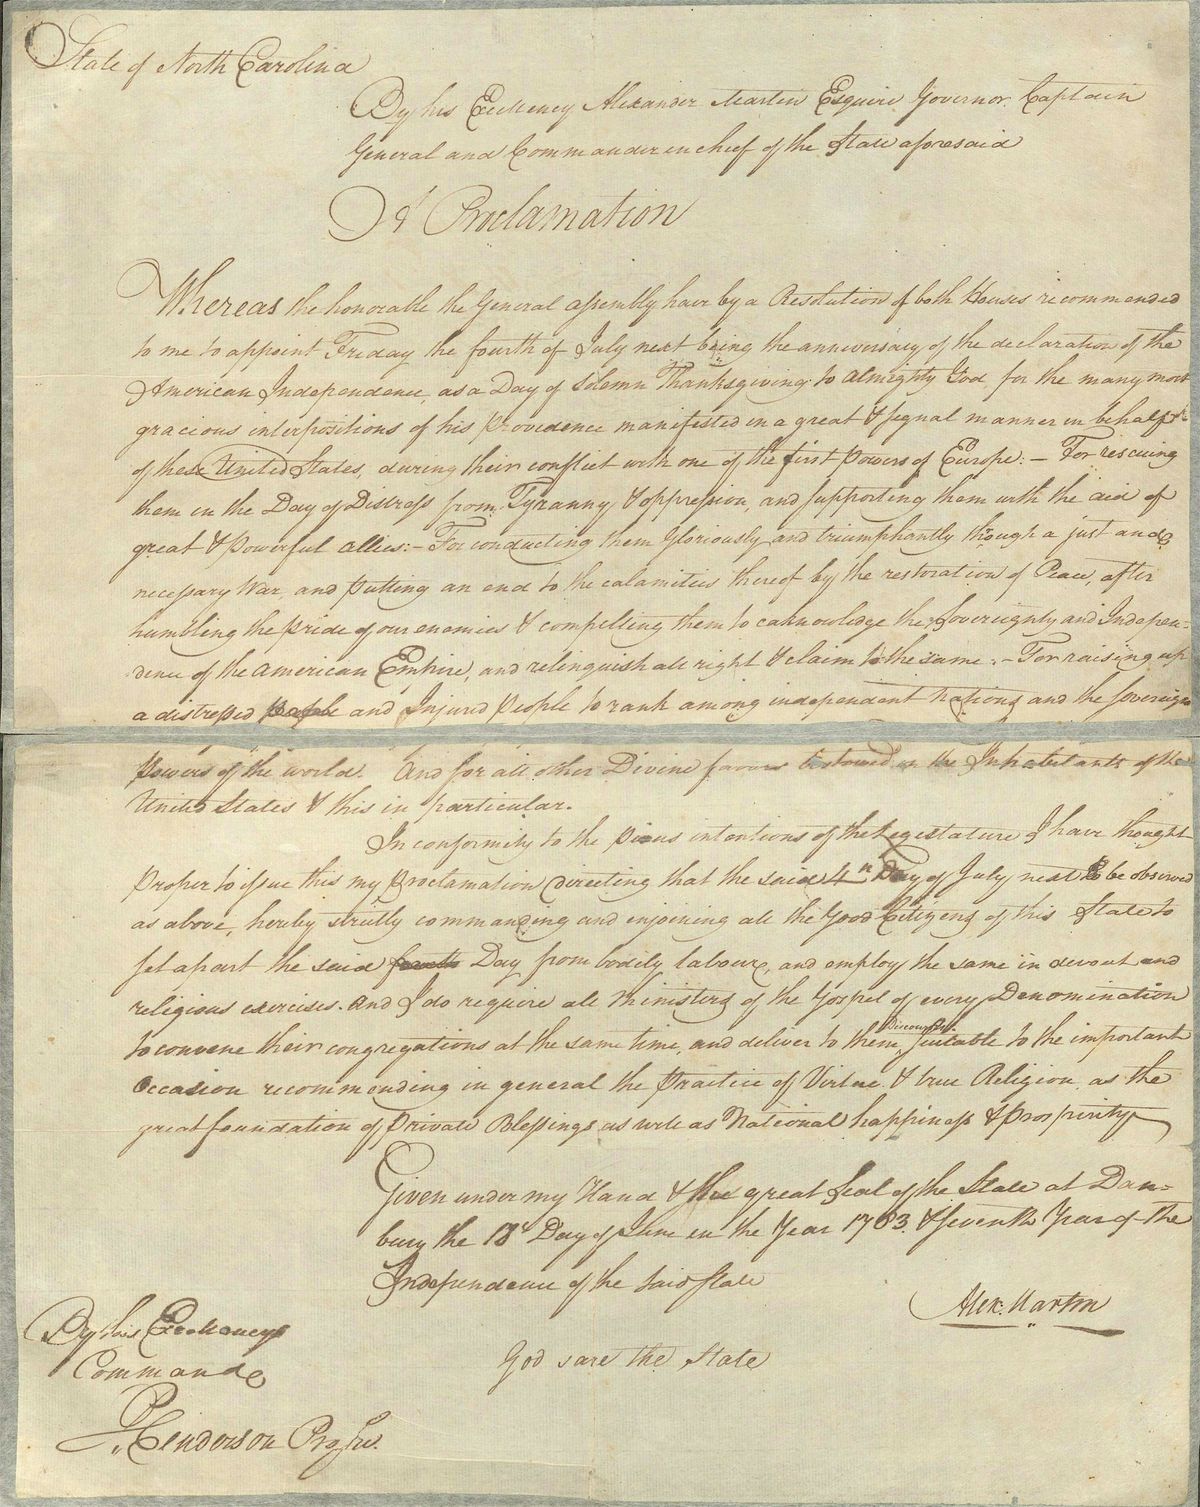 State of North Carolina
By his Excellency Alexander Martin Esquire Governor Captain
General and Commander in chief of the State aforesaid
A Proclamation
Whereas the honorable the General assembly have by a Resolution of both Houses recommended
to me to appoint Friday the fourth of July next being the anniversary of the declaration of the
American Independence, as a Day of Solemn Thanksgiving to Almighty God, for the many most
gracious interpositions of his Providence manifested in a great & signal manner in behalf
of these United States, during their conflict with one of the first Powers of Europe: – For rescuing
them in the Day of Distress from Tyranny & oppression, and supporting them with the aid of
great & powerful allies: – For conducting them Gloriously and triumphantly through a just and
necessary War, and putting an end to the calamities thereof by the restoration of Peace, after
humbling the pride of our enemies & compelling them to acknowledge the Sovereignty and Indepen-
dence of the American Empire, and relinquish all right & claim to the same: – For raising up
a distressed people and Injured People to rank among independent Nations and the Sovereign
Powers of the world. And for all other Divine favors bestowed on the Inhabitants of the
United States & this in particular.
In conformity to the Pious intentions of the Legislature I have thought
Proper to issue this my Proclamation directing that the said 4th Day of July next to be observed
as above, hereby strictly commanding and enjoining all the Good Citizens of this State to
set apart the said fourth Day from bodily labour, and employ the same in devout and
religious exercises. And I do require all Ministers of the Gospel of every Denomination
to convene their congregations at the same time, and deliver to them Discourses suitable to the important
Occasion recommending in general the Practice of Virtue & true Religion as the
great foundation of Private Blessings as well as National happiness & prosperity
Given under my Hand & the great Seal of the State at Dan=
bury the 18th Day of June in the Year 1783 & seventh Year of the
Independence of the said State
Alex. Martin
By his Excellency's
Command
God save the State
P. Henderson Pro Sec.